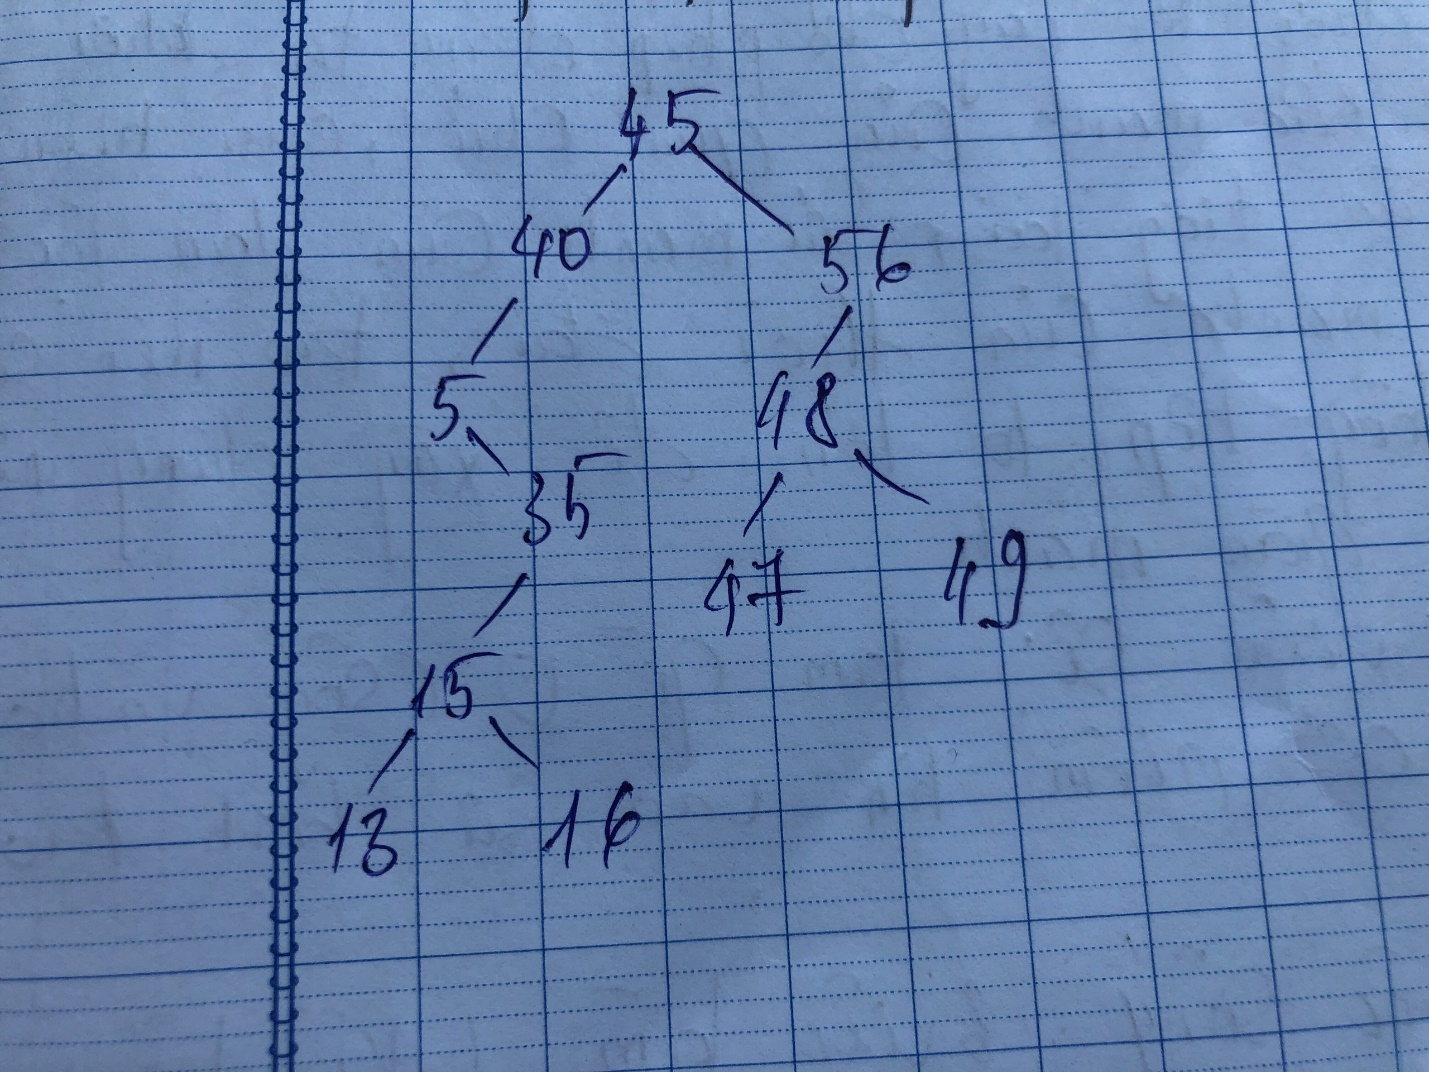 45
40 56
5 48
35
47 49
15
13 16